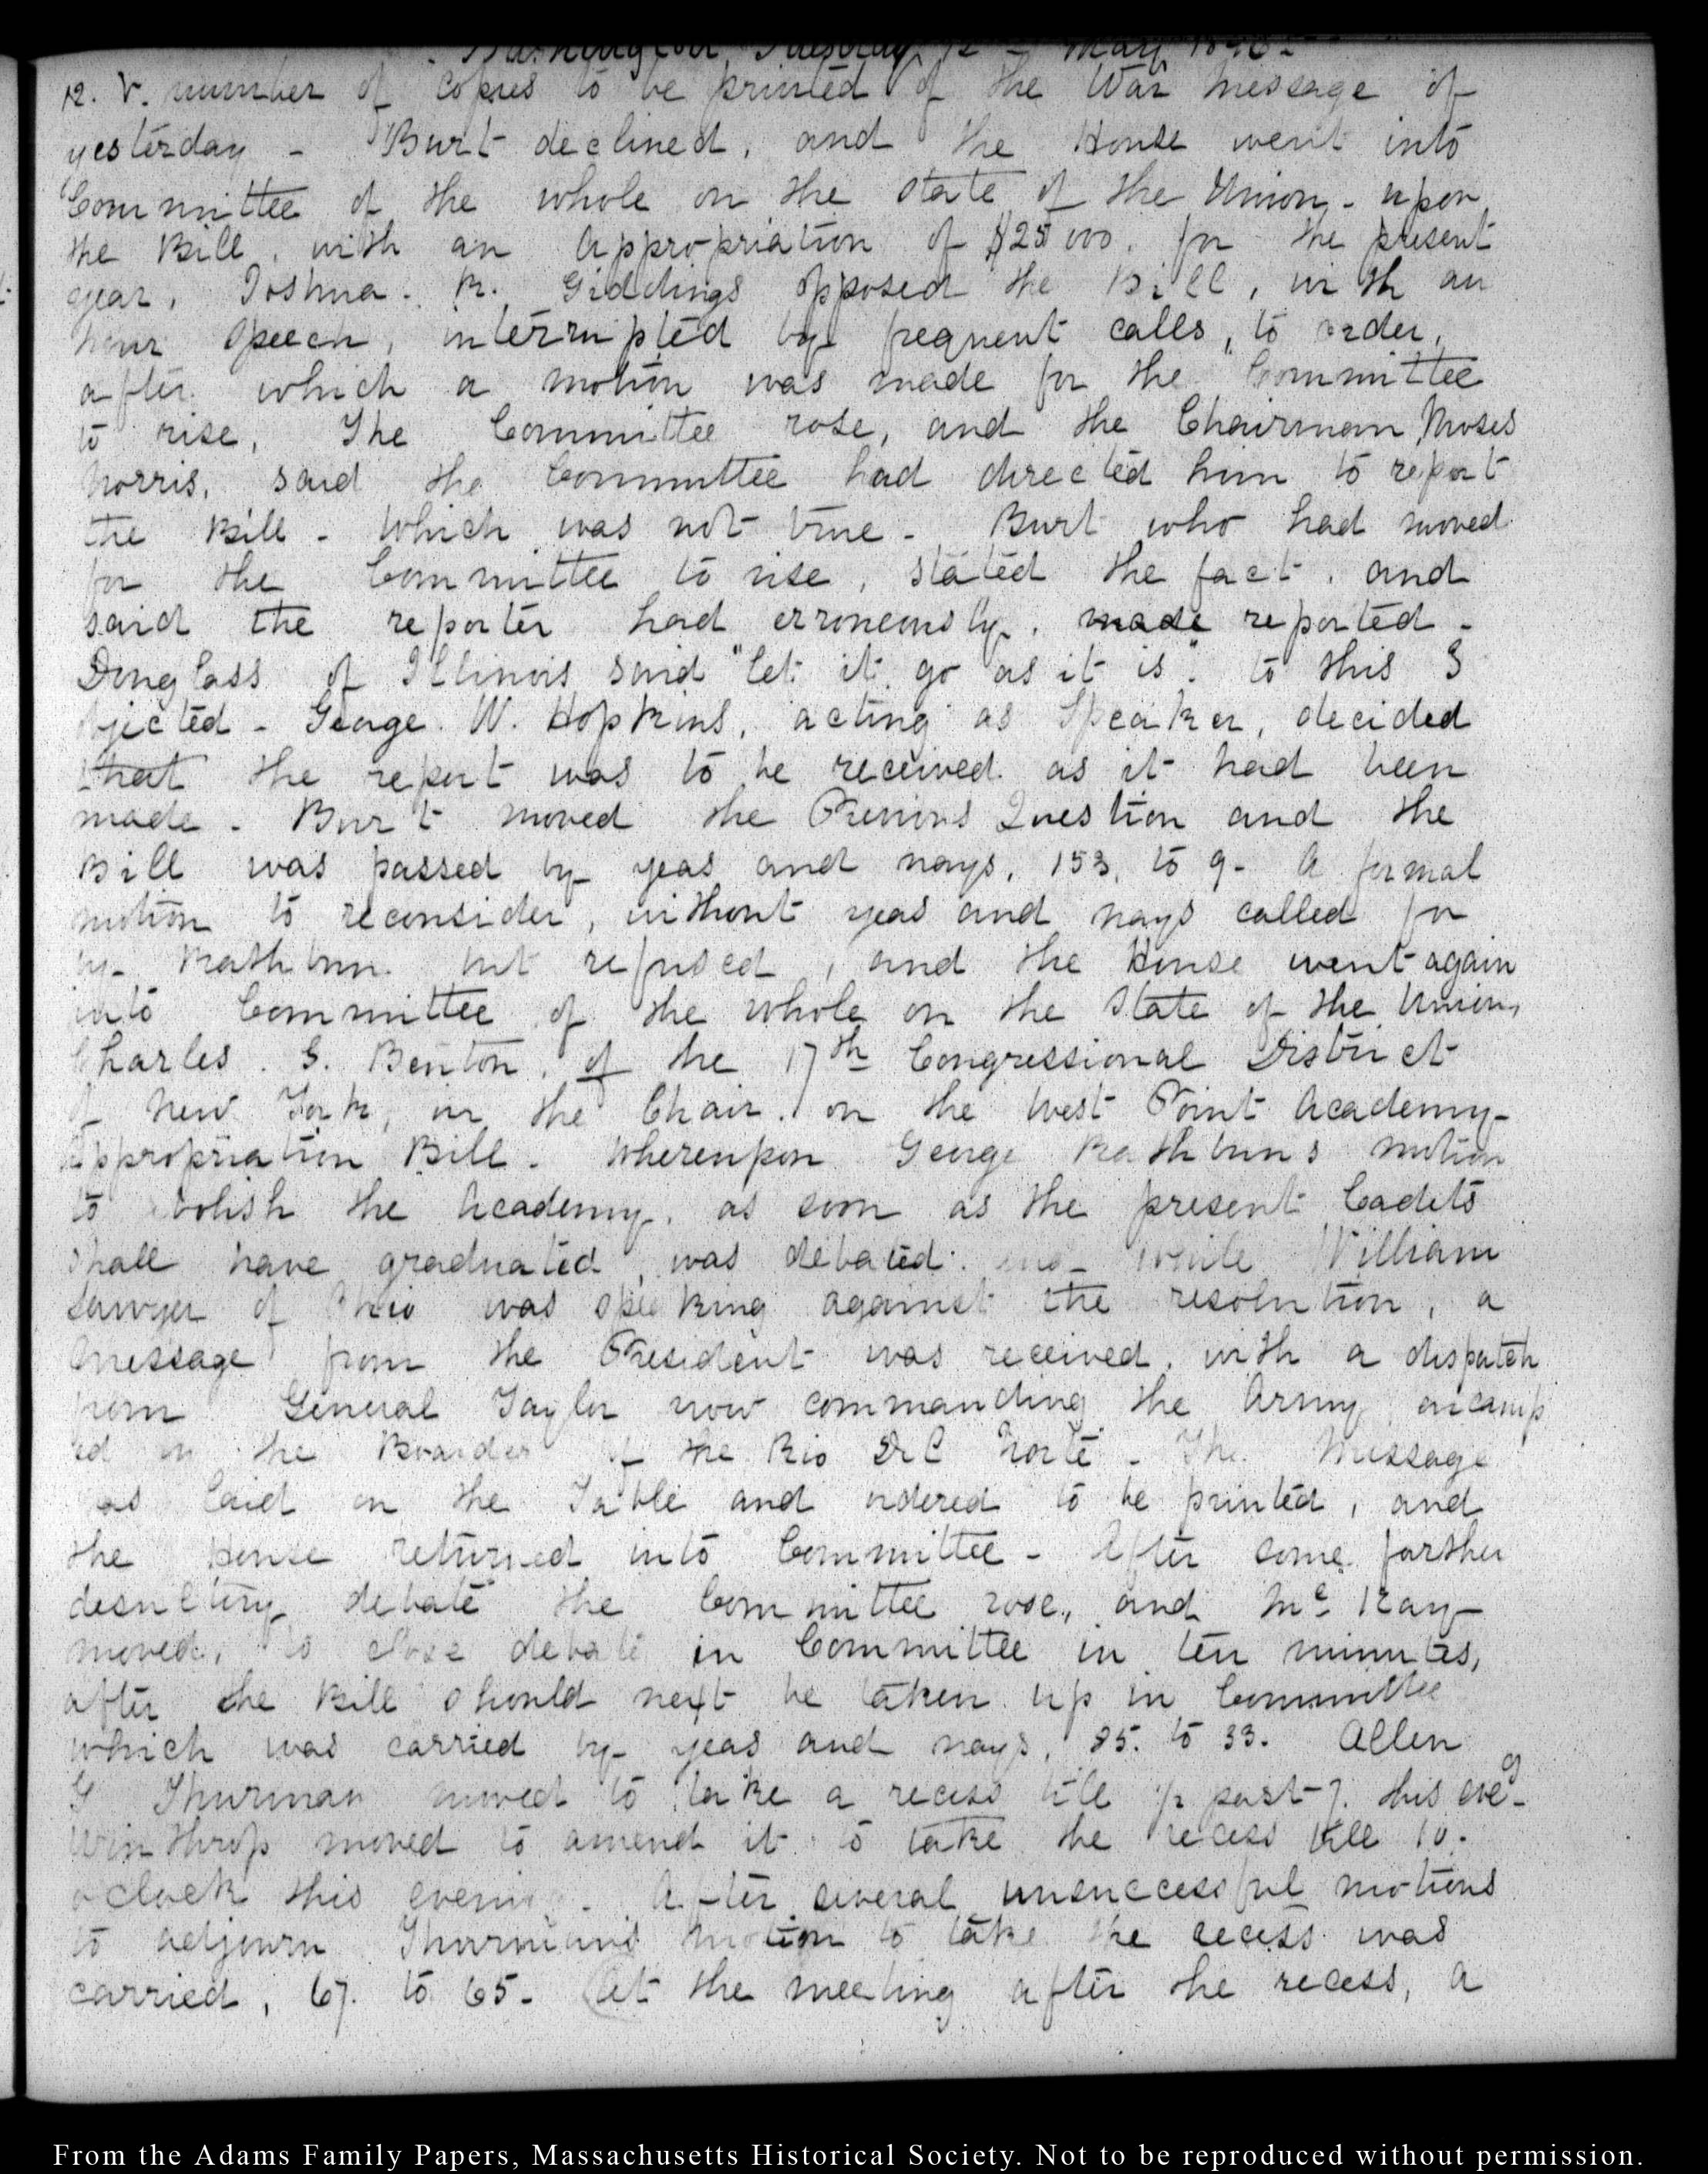 Washington, Tuesday 12 May 1846.
12. V. number of copies to be printed of the War Message of
yesterday - Burt declined, and the House went into
Committee of the whole on the state of the Union - upon
the Bill, with an Appropriation of $25000. for the present
year, Joshua. R. Giddings opposed the Bill, with an
hour speech, interrupted by frequent calls, to order,
after which a motion was made for the Committee
to rise, The Committee rose, and the Chairman, Moses
Norris, said the Committee had directed him to report
the Bill - Which was not true - Burt who had moved
for the Committee to rise, stated the fact, and
said the reporter had erroneously, made reported -
Douglass of Illinois said "let it go as it is". to this I
objected - George. W. Hopkins, acting as Speaker, decided
that the report was to be received as it had been
made - Burt moved the Previous Question and the
Bill was passed by yeas and nays, 153, to 9 - A formal
motion to reconsider, without yeas and nays called for
by Rathbun but refused, and the House went again
into Committee of the whole on the State of the Union,
Charles. S. Benton, of the 17th Congressional District
of New York, in the Chair. on the West Point Academy-
Appropriation Bill - Whereupon George Rathbuns motion
to abolish the Academy, as soon as the present Cadets
shall have graduated, was debated: and while William
Sawyer of Ohio was speaking against the resolution, a
Message from the President was received, with a dispatch
from General Taylor now commanding the Army encamp
ed on the Boarder of the Rio Del Norte - The Message
was laid on the Table and ordered to be printed, and
the House returned into Committee - After some further
desultory debate the Committee rose, and Mc Kay
moved, to close debate in Committee in ten minutes,
after the Bill should next be taken up in Committee
which was carried by yeas and nays, 85. to 33. Allen
G Thurman moved to take a recess till 1/2 past 7. this eveg-
Winthrop moved to amend it to take the recess till 10.
o'clock this evening. After several unsuccessful motions
to adjourn Thurmans motion to take the recess was
carried, 67. to 65 - At the meeting after the recess, a
From the Adams Family Papers, Massachusetts Historical Society. Not to be reproduced without permission.